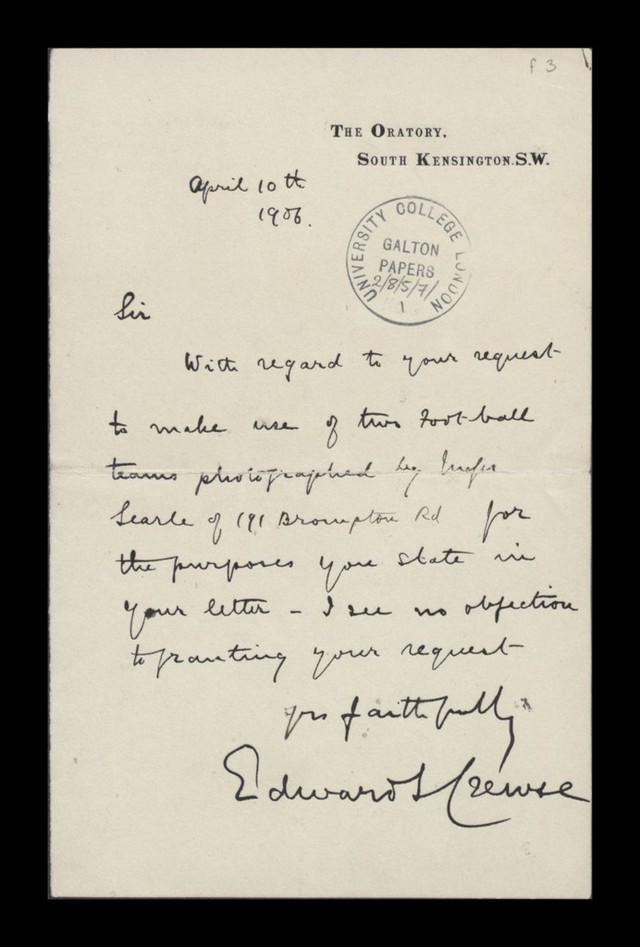 f 3
THE ORATORY,
SOUTH KENSINGTON. S.W.
April 10th
1906.
UNIVERSITY COLLEGE LONDON
GALTON
PAPERS
2/8/5/7/
1
Sir
With regard to your request
to make use of two Foot-ball
teams photographed by Messrs
Searle of 191 Brompton Rd for
the purposes you state in
your letter - I see no objection
to granting your request
yrs faithfully
Edward Crewse